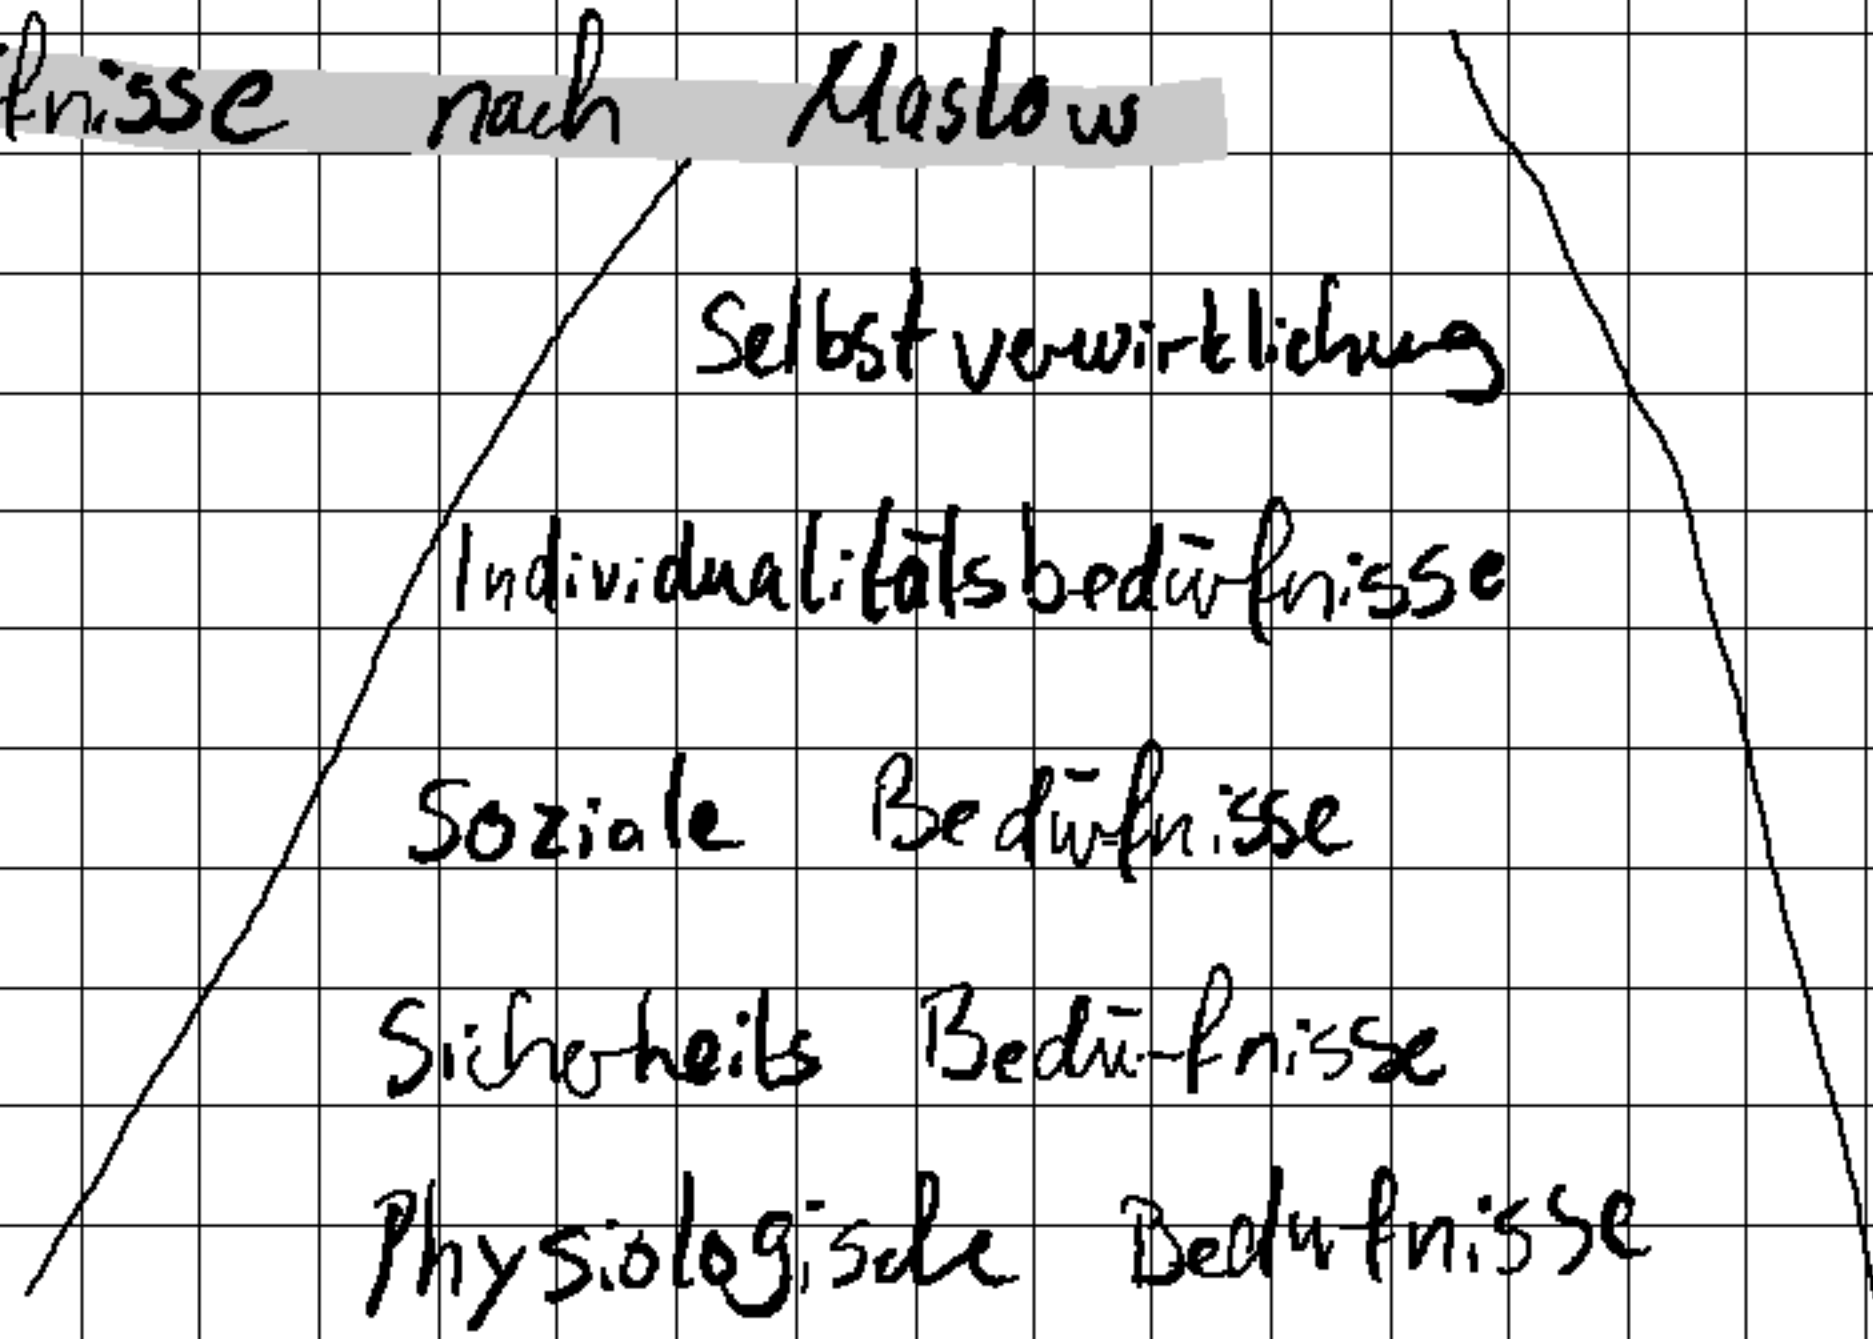 fnisse nach Maslow
Selbstverwirklichung
Individualitätsbedürfnisse
Soziale Bedürfnisse
Sicherheits Bedürfnisse
Physiologische Bedürfnisse